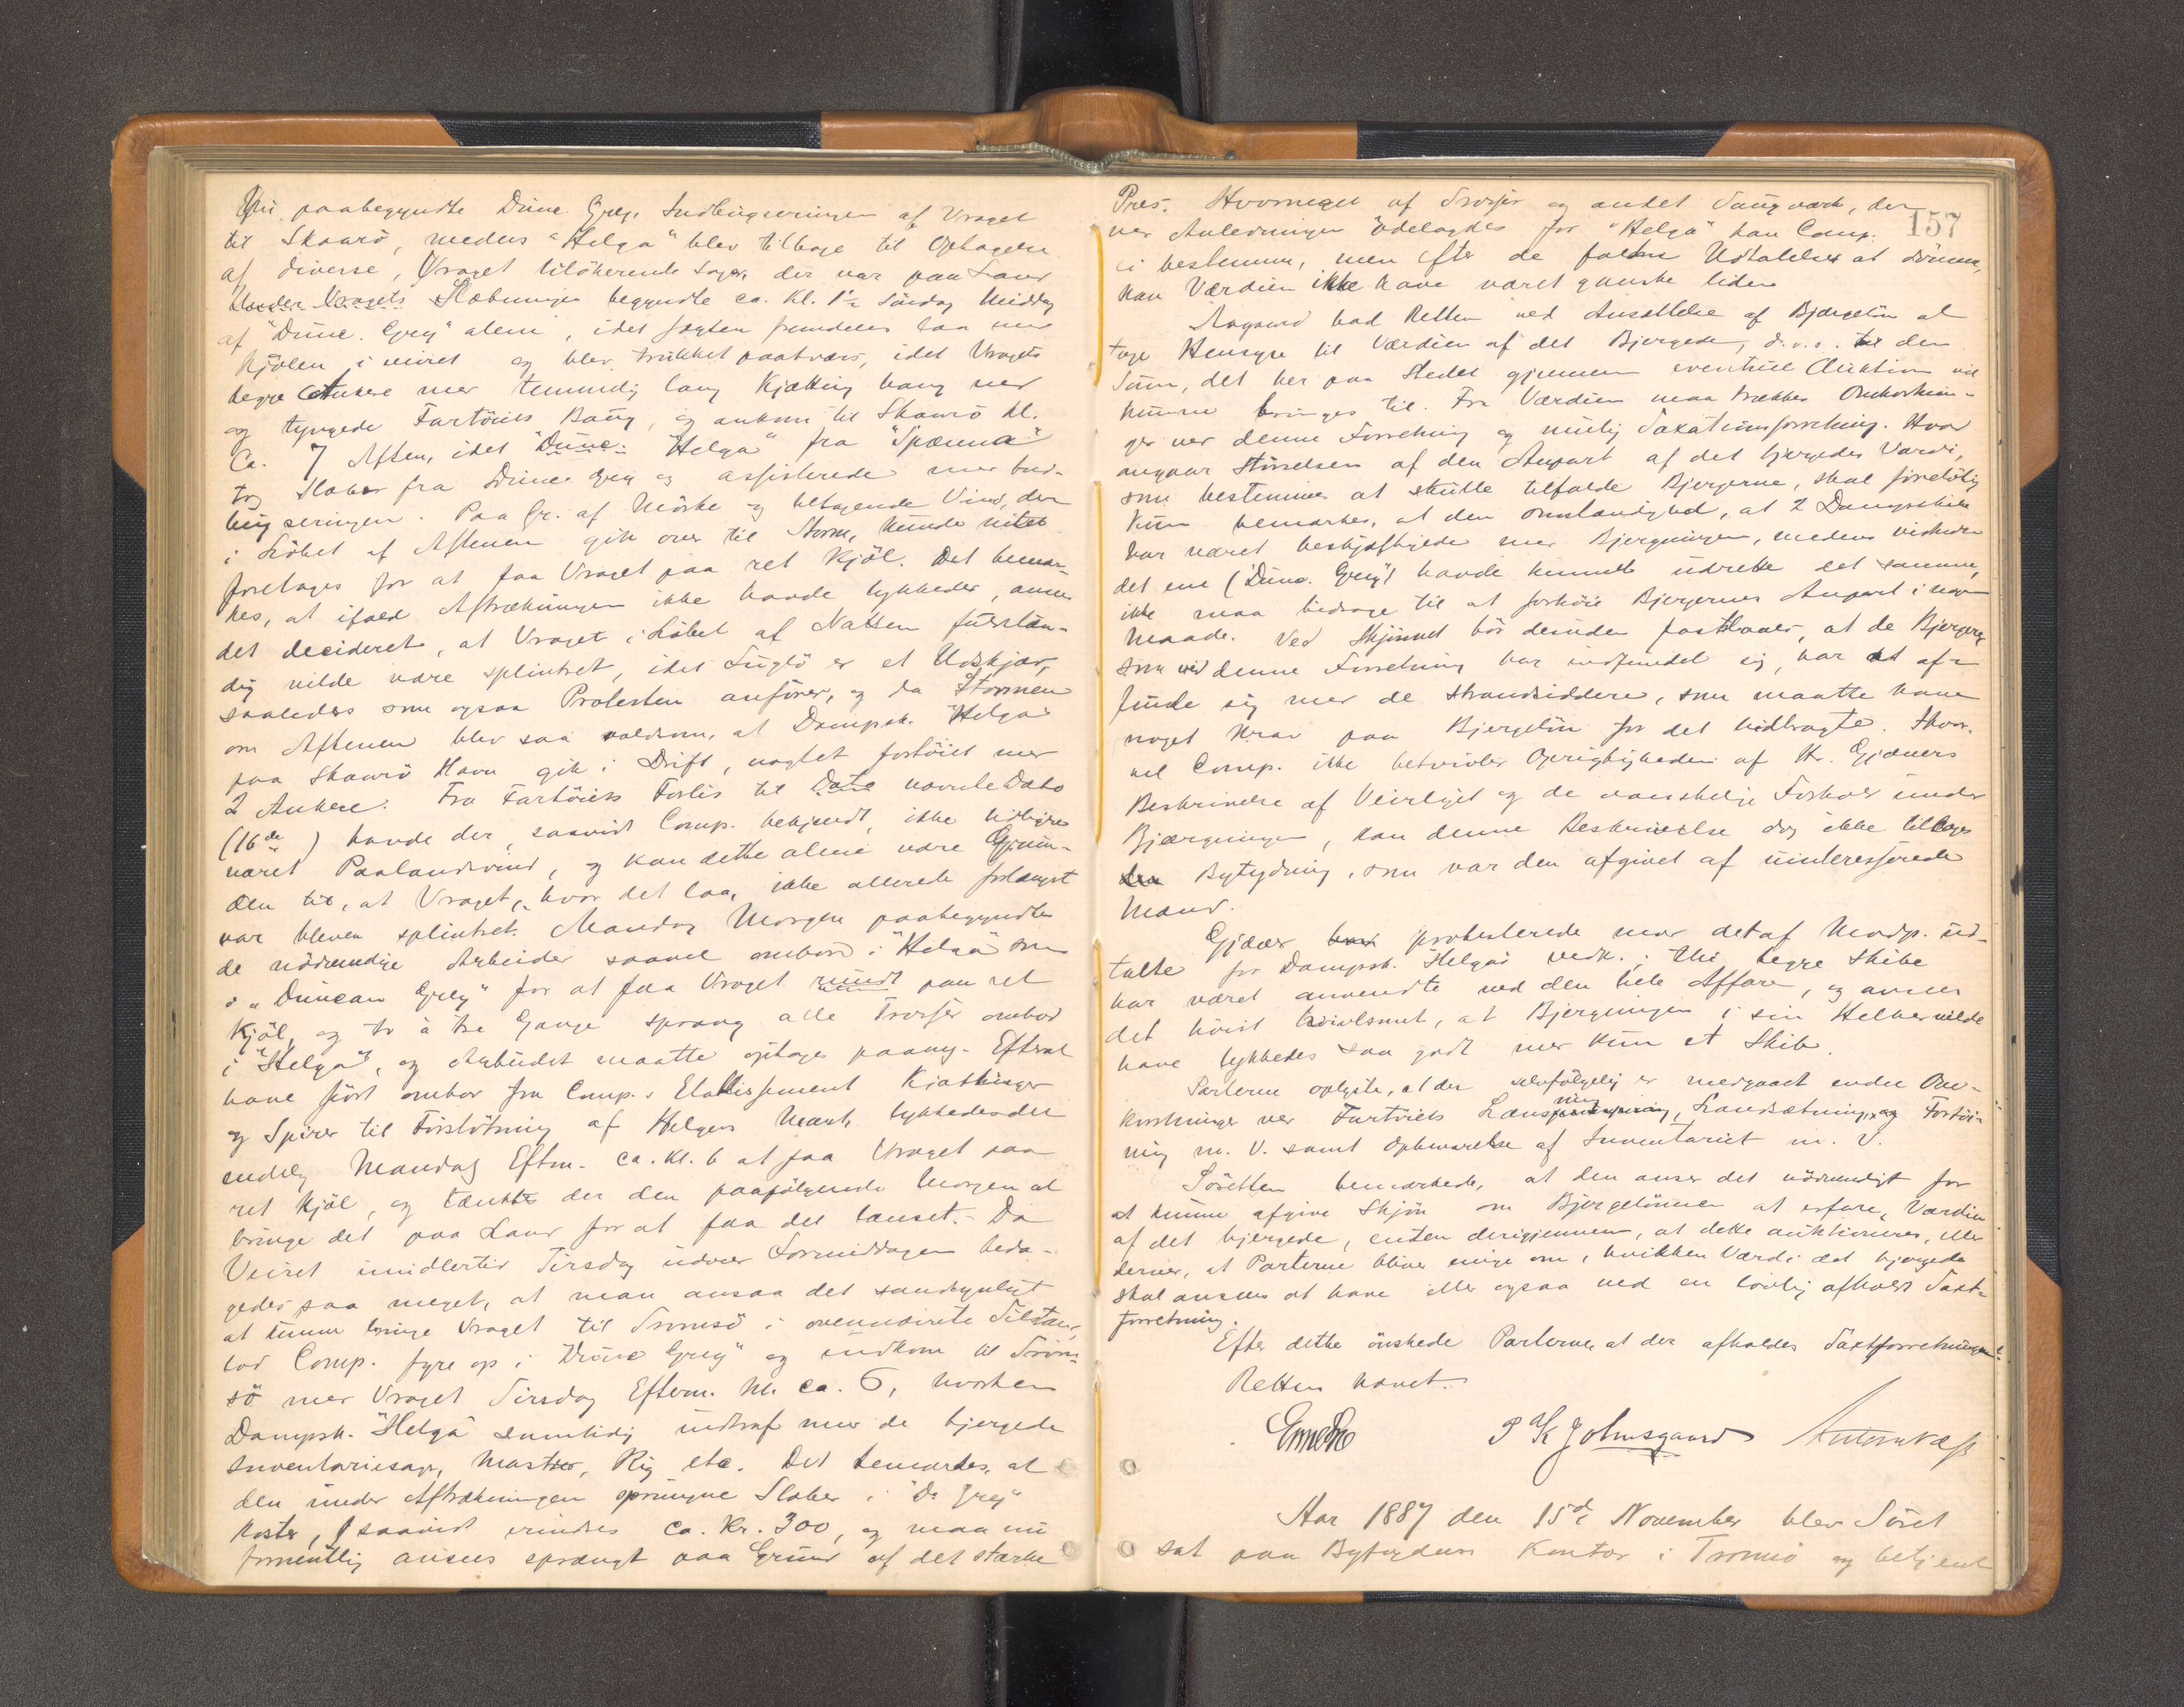 paabegyndte Dunc. Greys Indbugseringen af Vraget
til Skaarö, medens "Helga" blev tilbage til Optagelse
af diverse, Vraget tilhörende Sager, der var paa Land
Under Vragets Slæbningen begyndte ca. Kl. 1½ Söndag Middag
af "Dunc. Grey" alene, idet Jagten fremdeles laa med
Kjölen i veiret og blev trukket paatværs, idet Vragets
begge Ankere med temmelig lang Kjætting hang ned
og tyngede Fartöiets Baug, og ankom til Skaarö kl.
Ca. 7 Aften, idet Dunc. "Helga" fra "Spænna"
tog Slæber fra Dunc. Grey og assisterede med Ind-
bugseringen. Paa Gr. af Mörke og tiltagende Vind, der
i Löbet af Aftenen gik over til Storm, kunde intet
foretages for at faa Vraget paa ret Kjöl. Det bemær-
kes, at ifald Aftrækningen ikke havde lykkedes, ansees
det decideret, at Vraget i Löbet af Natten fuldstæn-
dig vilde være splintret, idet Fuglö er et Udskjær,
saaledes som ogsaa Protesten anförer, og da Stormen
om Aftenen blev saa voldsom, at Dampsk. "Helga"
paa Skaarö Havn gik i Drift, uagtet fortöiet med
2 Ankere. Fra Fartöiets Forlis til Date nævnte Dato
(16de) havde der, saavidt Comp. bekjendt, ikke tidligere
været Paalandsvind, og kan dette alene være Grun-
den til, at Vraget, hvor det laa, ikke allerede forlængst
var bleven splintret. Mandag Morgen paabegyndtes
de nödvendige Arbeider saavel ombord i "Helga" som
i "Duncan Grey" for at faa Vraget rundt paa ret
Kjöl, og to à tre Gange sprang alle Trosser ombord
i "Helga", og Arbeidet maatte optages paany. Efterat
have fört ombord fra Comp.s Etablissement Kjættinger
og Spirer til Forstötning af Helgas Mast, lykkedes det
endelig Mandag Eftm. ca. Kl. 6 at faa Vraget paa
ret Kjöl, og tænktes der den paafölgende Morgen at
bringe det paa Land for at faa det lænset. Da
Veiret imidlertid Tirsdag udover Formiddagen beda-
gedes saa meget, at man ansaa det sandsynligt
at kunne bringe Vraget til Tromsö i ovennævnte Tilstand,
lod Comp. fyre op i "Dunc Grey" og indkom til Trom-
sö med Vraget Tirsdag Efterm. Kl. ca. 6, hvorhen
Dampsk. "Helga" samtidig indtraf med de bjergede
Inventariesager, Master, Rig etc. Det bemærkes, at
den under Aftrækningen sprungne Slæber i "D. Grey"
koster, saavidt erindres ca. Kr. 300, og maa nu
formentlig ansees sprængt paa Grund af det stærke
157
Pres. Hvormeget af Trosser og andet Taugværk, der
ved Anledningen ödelagdes for "Helga" kan Comp.
ei bestemme, men efter de faldne Udtalelser at dömme,
kan Værdien ikke have været ganske liden
Aagaard bad Retten ved Ansættelse af Bjergelön at
tage Hensyn til Værdien af det Bjergede, d.v.s. til den
Sum, det her paa Stedet gjennem eventuel Auktion vil
kunne bringes til. Fra Værdien maa trækkes Omkostnin-
ger ved denne Forretning og mulig Taxationsforretning. Hvad
angaar Störrelsen af den Anpart af det bjergedes Værdi,
som bestemmes at skulle tilfalde Bjergerne, skal forelöbig
kun bemærkes, at den Omstændighed, at 2 Dampskibe
har været beskjæftigede med Bjergningen, medens vistnok
det ene ("Dunc. Grey") havde kunnet udrette det samme,
ikke maa bidrage til at forhöie Bjergernes Anpart i nogen
Maade. Ved Skjönnet bör desuden fastslaaes, at de Bjergere
som ved denne Forretning har indfundet sig, har at af-
finde sig med de Strandsiddere, som maatte have
noget Krav paa Bjergelön for det indbragte. Skjönt
vel Comp. ikke betvivler Oprigtigheden af Hr. Gjævers
Beskrivelse af Veirliget og de vanskelige Forhold under
Bjærgningen, kan denne Beskrivelse dog ikke tillægges
den Bytydning, som var den afgivet af uinteresserede
Mænd.
Gjæver protesterede mod det af Modp. ud-
talte for Dampsk. Helgas Vedk.; thi begge Skibe
har været anvendte ved den hele Affære, og ansees
det höist tvivlsomt, at Bjergningen i sin Helhed vilde
have lykkedes saa godt med kun et Skib.
Parterne oplyste, at der selvfölgelig er medgaaet endel Om-
kostninger ved Fartöiets Lænsning, Landsætning, og Fortöi-
ning m. V. samt Opbevarelse af Inventariet m. V.
Söretten bemærkede, at den anser det nödvendigt for
at kunne afgive Skjön om Bjergelönnen at erfare, Værdien
af det bjergede, enten derigjennem, at dette auktioneres, eller
derved, at Parterne bliver enige om, hvilken Værdi det bjergede
skal ansees at have eller ogsaa ved en lovlig afholdt Taxt-
forretning.
Efter dette önskede Parterne, at der afholdes Taxtforretningen.
Retten hævet.
P K Johnsgaard
Aar 1887 den 15de November blev Söret
sat paa Byfogdens Kontor i Tromsö og betjent